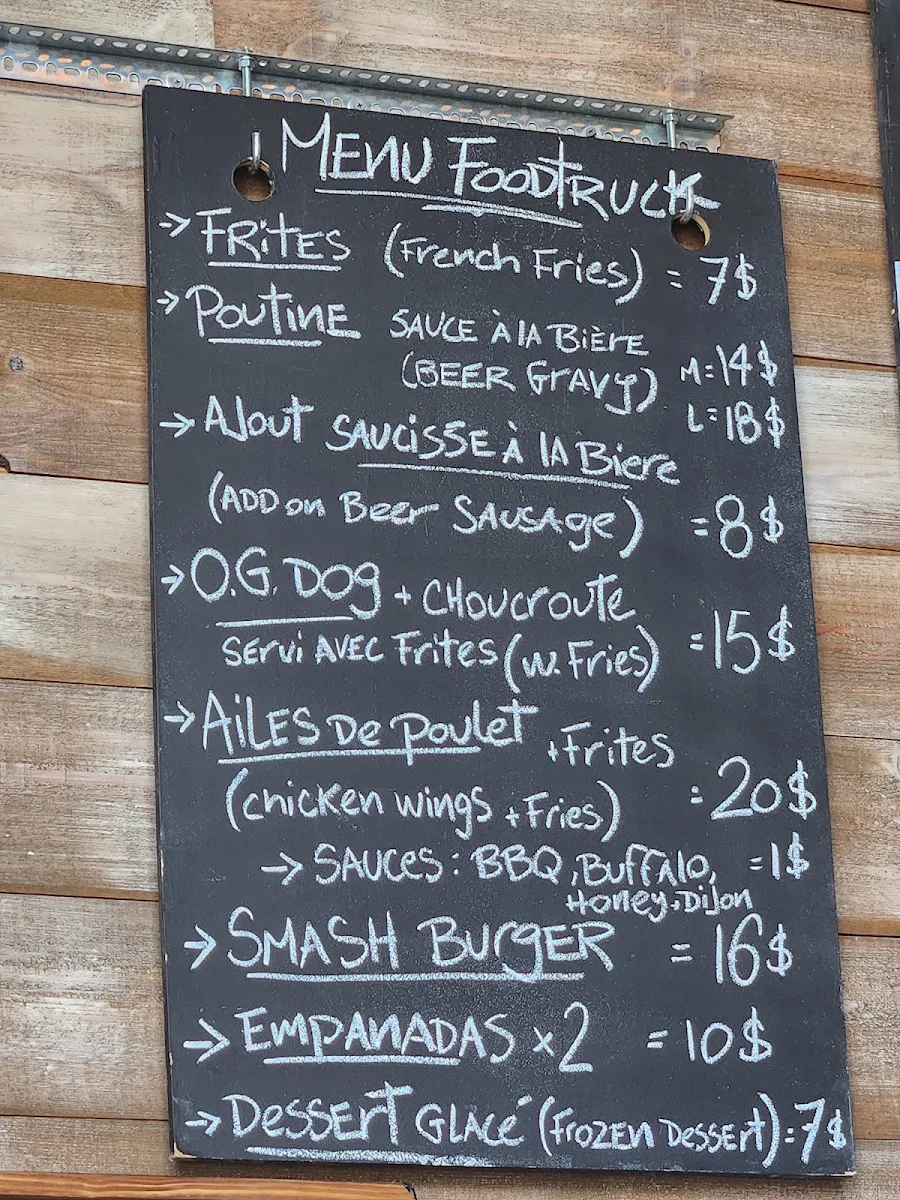 MENU FOODTRUCK
→ FRITES (French Fries) = 7$
→ POUTINE SAUCE À LA BIÈRE
(BEER GRAVY) M=14$
L=18$
→ AJOUT SAUCISSE À LA BIERE
(ADD on Beer SAUSAGE) =8$
→ O.G. DOG + CHOUCROUTE
SERVI AVEC Frites (w. Fries) =15$
→ AILES De POULET + Frites
(chicken wings + Fries) =20$
→ SAUCES: BBQ, BUFFALO, =1$
Honey-Dijon
→ SMASH BURGER = 16$
→ EMPANADAS x2 = 10$
→ DESSERT GLACÉ (FROZEN DESSERT) = 7$